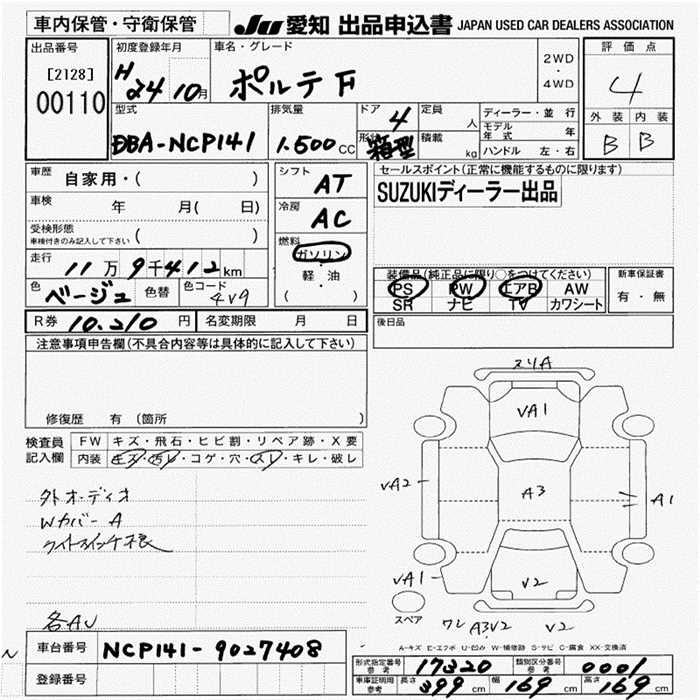 車内保管・守衛保管
JU 愛知 出品申込書 JAPAN USED CAR DEALERS ASSOCIATION
出品番号
[2128]
00110
初度登録年月
H24 10月
車名・グレード
ポルテ F
2WD
・
4WD
評価点
4
外装 内装
B B
型式
DBA-NCP141
排気量
1.500cc
ドア 4
形状 箱型
定員 人
積載 kg
ディーラー・並行
モデル年式 年
ハンドル 左・右
車歴 自家用・( )
車検 年 月(日)
受検形態
車検付きのみ記入して下さい ( )
走行 11万9千412km
色 ベージュ 色替
色コード 4V9
シフト AT
冷房 AC
燃料 ガソリン
軽・油
( )
セールスポイント(正常に機能するものに限ります)
SUZUKIディーラー出品
装備品(純正品に限り○をつけてください)
PS PW エアB AW
SR ナビ TV カワシート
新車保証書
有・無
R券 10.210円 名変期限 月 日
後日品
注意事項申告欄(不具合内容等は具体的に記入して下さい)
修復歴 有 (箇所 )
検査員記入欄
FW キズ・飛石・ヒビ割・リペア跡・X要
内装 キズ・汚レ・コゲ・穴・スレ・キレ・破レ
外オーディオ
Wカバー A
各AU
スリA
VA1
VA2
A3
A1
VA1
V2
スペア
ワレ A3V2 V2
A-キズ E-エクボ U-凹み W-補修跡 S-サビ C-腐食 XX-交換済
車台番号 NCP141-9027408
登録番号
形式指定番号 参考 17320
類別区分番号 参考 0001
車庫証明用 参考 長さ 399cm 幅 169cm 高さ 169cm